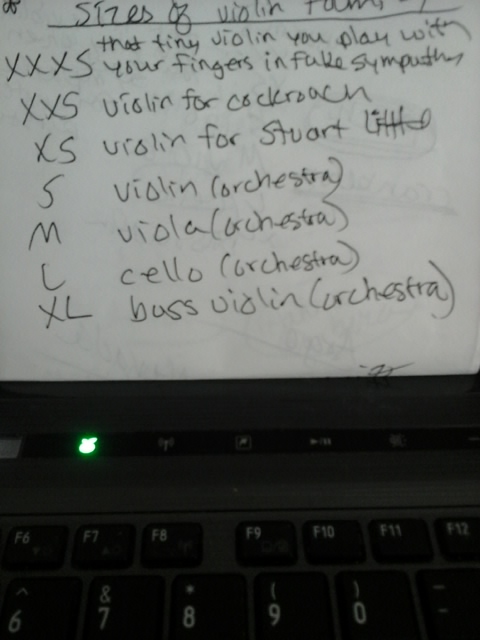 Sizes of violin family
that tiny violin you play with
XXXS your fingers in fake sympathy
XXS violin for cockroach
XS violin for Stuart Little
S violin (orchestra)
M viola (orchestra)
L cello (orchestra)
XL bass violin (orchestra)
F6 F7 F8 F9 F10 F11 F12
^ & * ( ) _
6 7 8 9 0 -